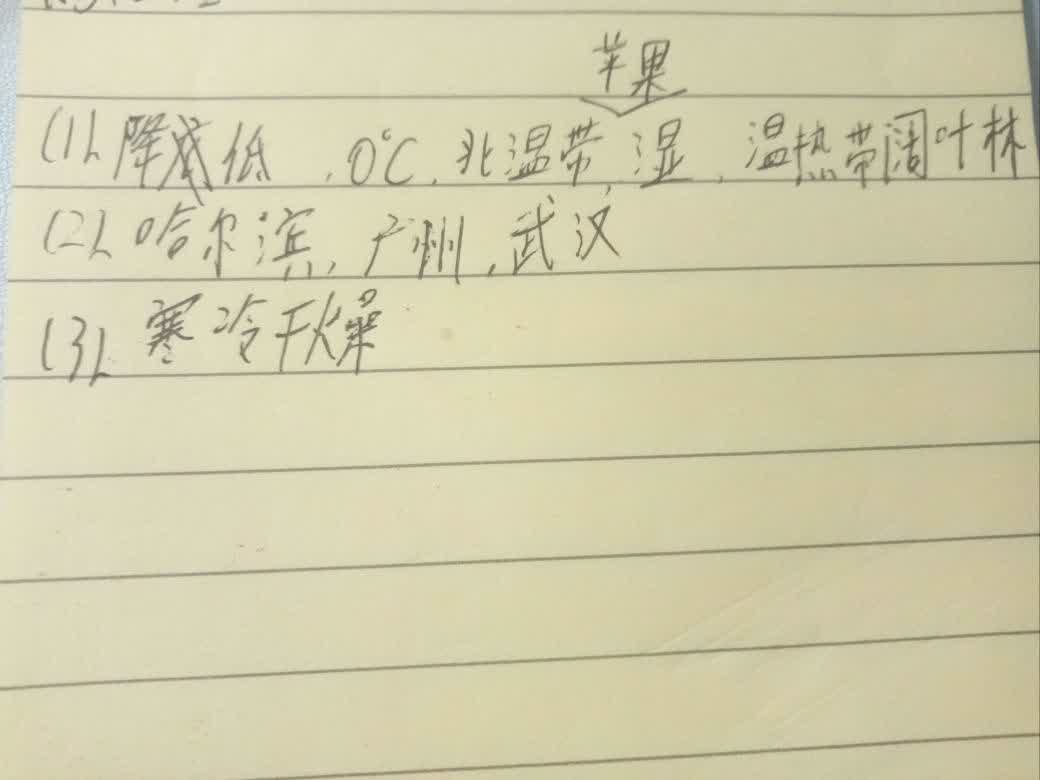 苹果
(1)、降低,0℃,北温带,湿,温热带阔叶林
(2)、哈尔滨,广州,武汉
(3)、寒冷干燥